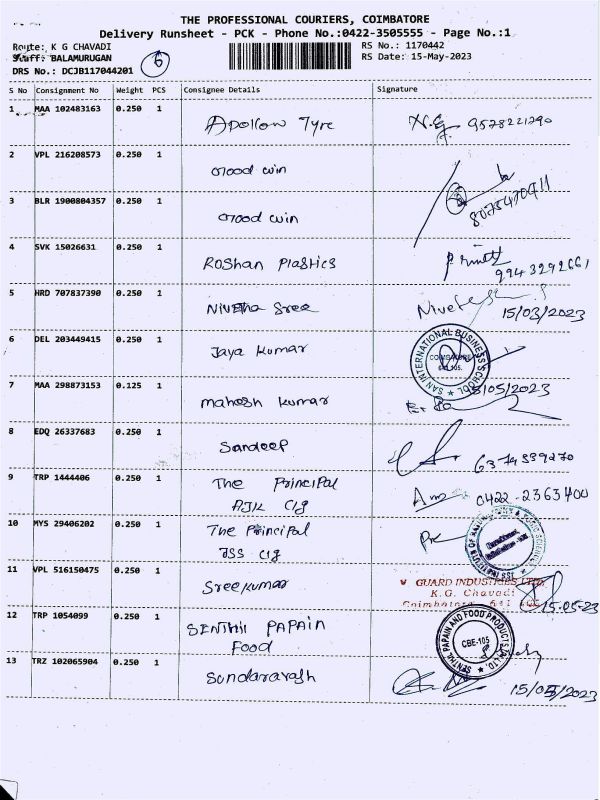 THE PROFESSIONAL COURIERS, COIMBATORE
Delivery Runsheet - PCK - Phone No.:0422-3505555 - Page No.:1
Route: K G CHAVADI
RS No.: 1170442
Staff: BALAMURUGAN
6
RS Date: 15-May-2023
DRS No.: DCJB117044201
S No Consignment No Weight PCS Consignee Details Signature
1 MAA 102483163 0.250 1 Apollow Tyre 9578221290
2 VPL 216208573 0.250 1 Good win
3 BLR 1900804357 0.250 1 Good win 8075470911
4 SVK 15026631 0.250 1 Roshan Plastics 9943292661
5 HRD 707837390 0.250 1 Nivetha Sree 15/03/2023
6 DEL 203449415 0.250 1 Jaya Kumar
SAN INTERNATIONAL BUSINESS SCHOOL
COIMBATORE
641 105.
7 MAA 298873153 0.125 1 Mahesh Kumar 15/05/2023
8 EDQ 26337683 0.250 1 Sandeep 6374539270
9 TRP 1444406 0.250 1 The Principal
AJK Clg
0422-2363400
10 MYS 29406202 0.250 1 The Principal
JSS Clg
11 VPL 516150475 0.250 1 Sreekumar
GUARD INDUSTRIES LTD.
K.G. Chavadi
Coimbatore 641 105
15.05.23
12 TRP 1054099 0.250 1 SENTHIL PAPAIN
Food
SENTHIL PAPAIN AND FOOD PRODUCTS (P) LTD.
CBE-105
13 TRZ 102065904 0.250 1 Sundararajh 15/05/2023